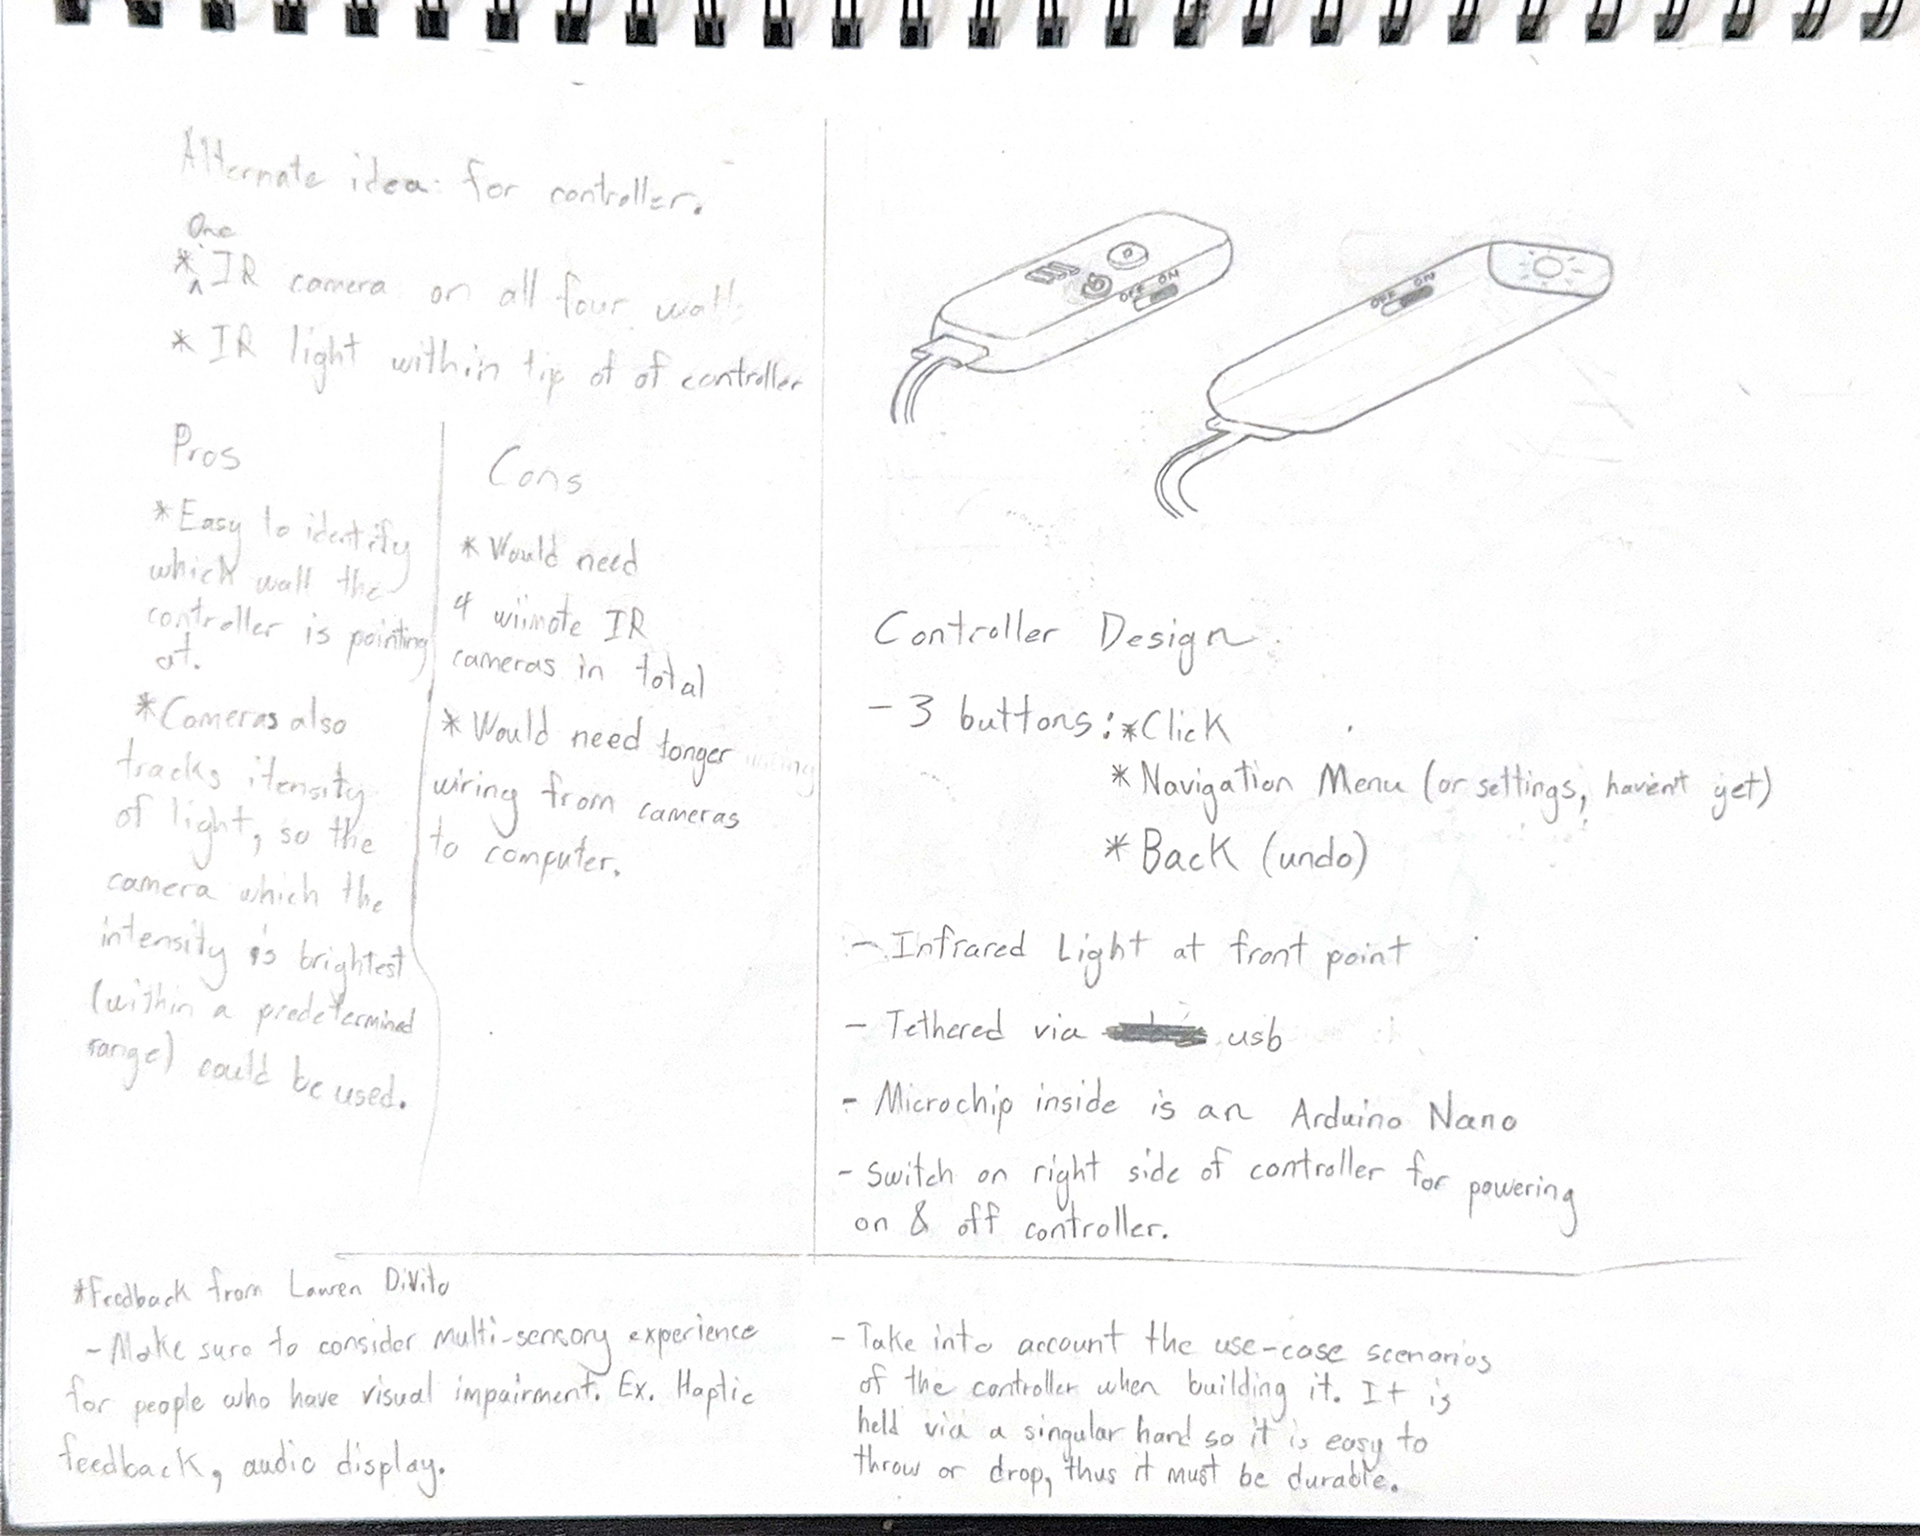 Alternate idea: for controller.
One
* ^ IR camera on all four wall
* IR light within tip of of controller
Pros
* Easy to identify
which wall the
controller is pointing
at.
* Cameras also
tracks itensity
of light, so the
camera which the
intensity is brightest
(within a predetermined
range) could be used.
Cons
* Would need
4 wiimote IR
cameras in total
* Would need longer wiring
wiring from cameras
to computer.
OFF ON
OFF ON
Controller Design
- 3 buttons: * Click
* Navigation Menu (or settings, haven't yet)
* Back (undo)
- Infrared Light at front point
- Tethered via usb
- Microchip inside is an Arduino Nano
- Switch on right side of controller for powering
on & off controller.
* Feedback from Lauren DiVito
- Make sure to consider multi-sensory experience
for people who have visual impairment. Ex. Haptic
feedback, audio display.
- Take into account the use-case scenarios
of the controller when building it. It is
held via a singular hand so it is easy to
throw or drop, thus it must be durable.